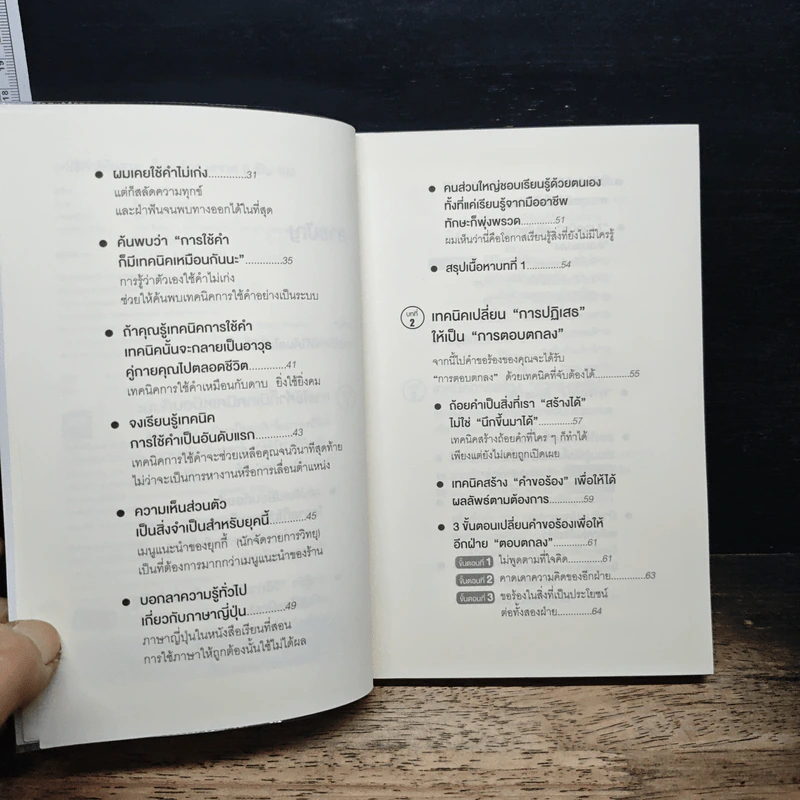 19
18
● ผมเคยใช้คำไม่เก่ง.............31
แต่ก็สลัดความทุกข์
และฝ่าฟันจนพบทางออกได้ในที่สุด
● ค้นพบว่า “การใช้คำ
ก็มีเทคนิคเหมือนกันนะ”.............35
การรู้ว่าตัวเองใช้คำไม่เก่ง
ช่วยให้ค้นพบเทคนิคการใช้คำอย่างเป็นระบบ
● ถ้าคุณรู้เทคนิคการใช้คำ
เทคนิคนั้นจะกลายเป็นอาวุธ
คู่กายคุณไปตลอดชีวิต.............41
เทคนิคการใช้คำเหมือนกับดาบ ยิ่งใช้ยิ่งคม
● จงเรียนรู้เทคนิค
การใช้คำเป็นอันดับแรก.............43
เทคนิคการใช้คำจะช่วยเหลือคุณจนวินาทีสุดท้าย
ไม่ว่าจะเป็นการหางานหรือการเลื่อนตำแหน่ง
● ความเห็นส่วนตัว
เป็นสิ่งจำเป็นสำหรับยุคนี้.............45
เมนูแนะนำของยุกกี้ (นักจัดรายการวิทยุ)
เป็นที่ต้องการมากกว่าเมนูแนะนำของร้าน
● บอกลาความรู้ทั่วไป
เกี่ยวกับภาษาญี่ปุ่น.............49
ภาษาญี่ปุ่นในหนังสือเรียนที่สอน
การใช้ภาษาให้ถูกต้องนั้นใช้ไม่ได้ผล
● คนส่วนใหญ่ชอบเรียนรู้ด้วยตนเอง
ทั้งที่แค่เรียนรู้จากมืออาชีพ
ทักษะก็พุ่งพรวด.............51
ผมเห็นว่านี่คือโอกาสเรียนรู้สิ่งที่ยังไม่มีใครรู้
● สรุปเนื้อหาบทที่ 1.............54
บทที่ 2 เทคนิคเปลี่ยน “การปฏิเสธ”
ให้เป็น “การตอบตกลง”
จากนี้ไปคำขอร้องของคุณจะได้รับ
“การตอบตกลง” ด้วยเทคนิคที่จับต้องได้.............55
● ถ้อยคำเป็นสิ่งที่เรา “สร้างได้”
ไม่ใช่ “นึกขึ้นมาได้”.............57
เทคนิคสร้างถ้อยคำที่ใคร ๆ ก็ทำได้
เพียงแต่ยังไม่เคยถูกเปิดเผย
● เทคนิคสร้าง “คำขอร้อง” เพื่อให้ได้
ผลลัพธ์ตามต้องการ.............59
● 3 ขั้นตอนเปลี่ยนคำขอร้องเพื่อให้
อีกฝ่าย “ตอบตกลง”.............61
ขั้นตอนที่ 1 ไม่พูดตามที่ใจคิด.............61
ขั้นตอนที่ 2 คาดเดาความคิดของอีกฝ่าย.............63
ขั้นตอนที่ 3 ขอร้องในสิ่งที่เป็นประโยชน์
ต่อทั้งสองฝ่าย.............64